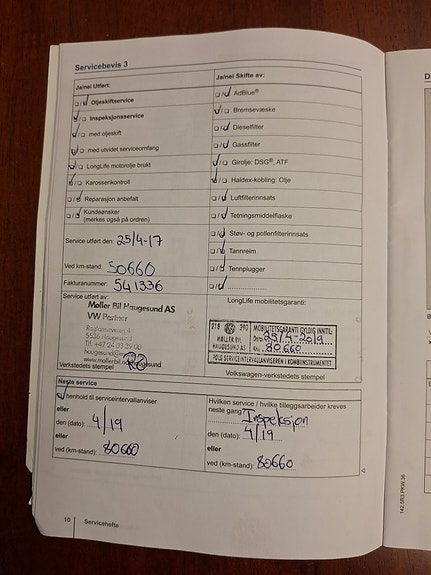 Servicebevis 3
Ja/nei Utført:
Oljeskiftservice
Inspeksjonsservice
med oljeskift
med utvidet serviceomfang
LongLife motorolje brukt
Karossenkontroll
Reparasjon anbefalt
Kundeønsker
(merkes også på ordren)
Service utført den: 25/4-17
Ved km-stand: 50660
Fakturanummer: 541336
Service utført av:
Møller Bil Haugesund AS
VW Partner
5536 Haugesund
Tlf. +47 24 03 39 00
Verkstedets stempel
Ja/nei Skifte av:
AdBlue®
Bremsevæske
Dieselfilter
Gassfilter
Girolje: DSG®, ATF
Haldex-kobling: Olje
Luftfilterinnsats
Tetningsmiddelflaske
Støv- og pollenfilterinnsats
Tannreim
Tennplugger
LongLife mobilitetsgaranti:
218 390
MØLLER BIL
HAUGESUND AS
MOBILITETSGARANTI GYLDIG INNTIL:
Dato: 25/4-2019
Km: 80660
FØLG SERVICEINTERVALLANVISEREN I KOMBIINSTRUMENTET
Volkswagen-verkstedets stempel
Neste service
I henhold til serviceintervallanviser
eller
den (dato): 4/19
eller
ved (km-stand): 80660
Hvilken service / hvilke tilleggsarbeider kreves
neste gang? Inspeksjon
den (dato): 4/19
eller
ved (km-stand): 80660
10 Servicehefte
142.5R3.PKW.36